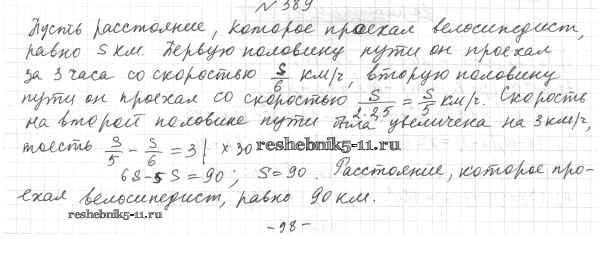 N 389
Пусть расстояние, которое проехал велосипедист,
равно S км. Первую половину пути он проехал
за 3 часа со скоростью S/6 км/ч, вторую половину
пути он проехал со скоростью S/2·2,5 = S/5 км/ч. Скорость
на второй половине пути была увеличена на 3 км/ч,
тоесть S/5 - S/6 = 3 | × 30
reshebnik5-11.ru
6S-5S=90; S=90. Расстояние, которое про-
ехал велосипедист, равно 90 км.
reshebnik5-11.ru
-98-